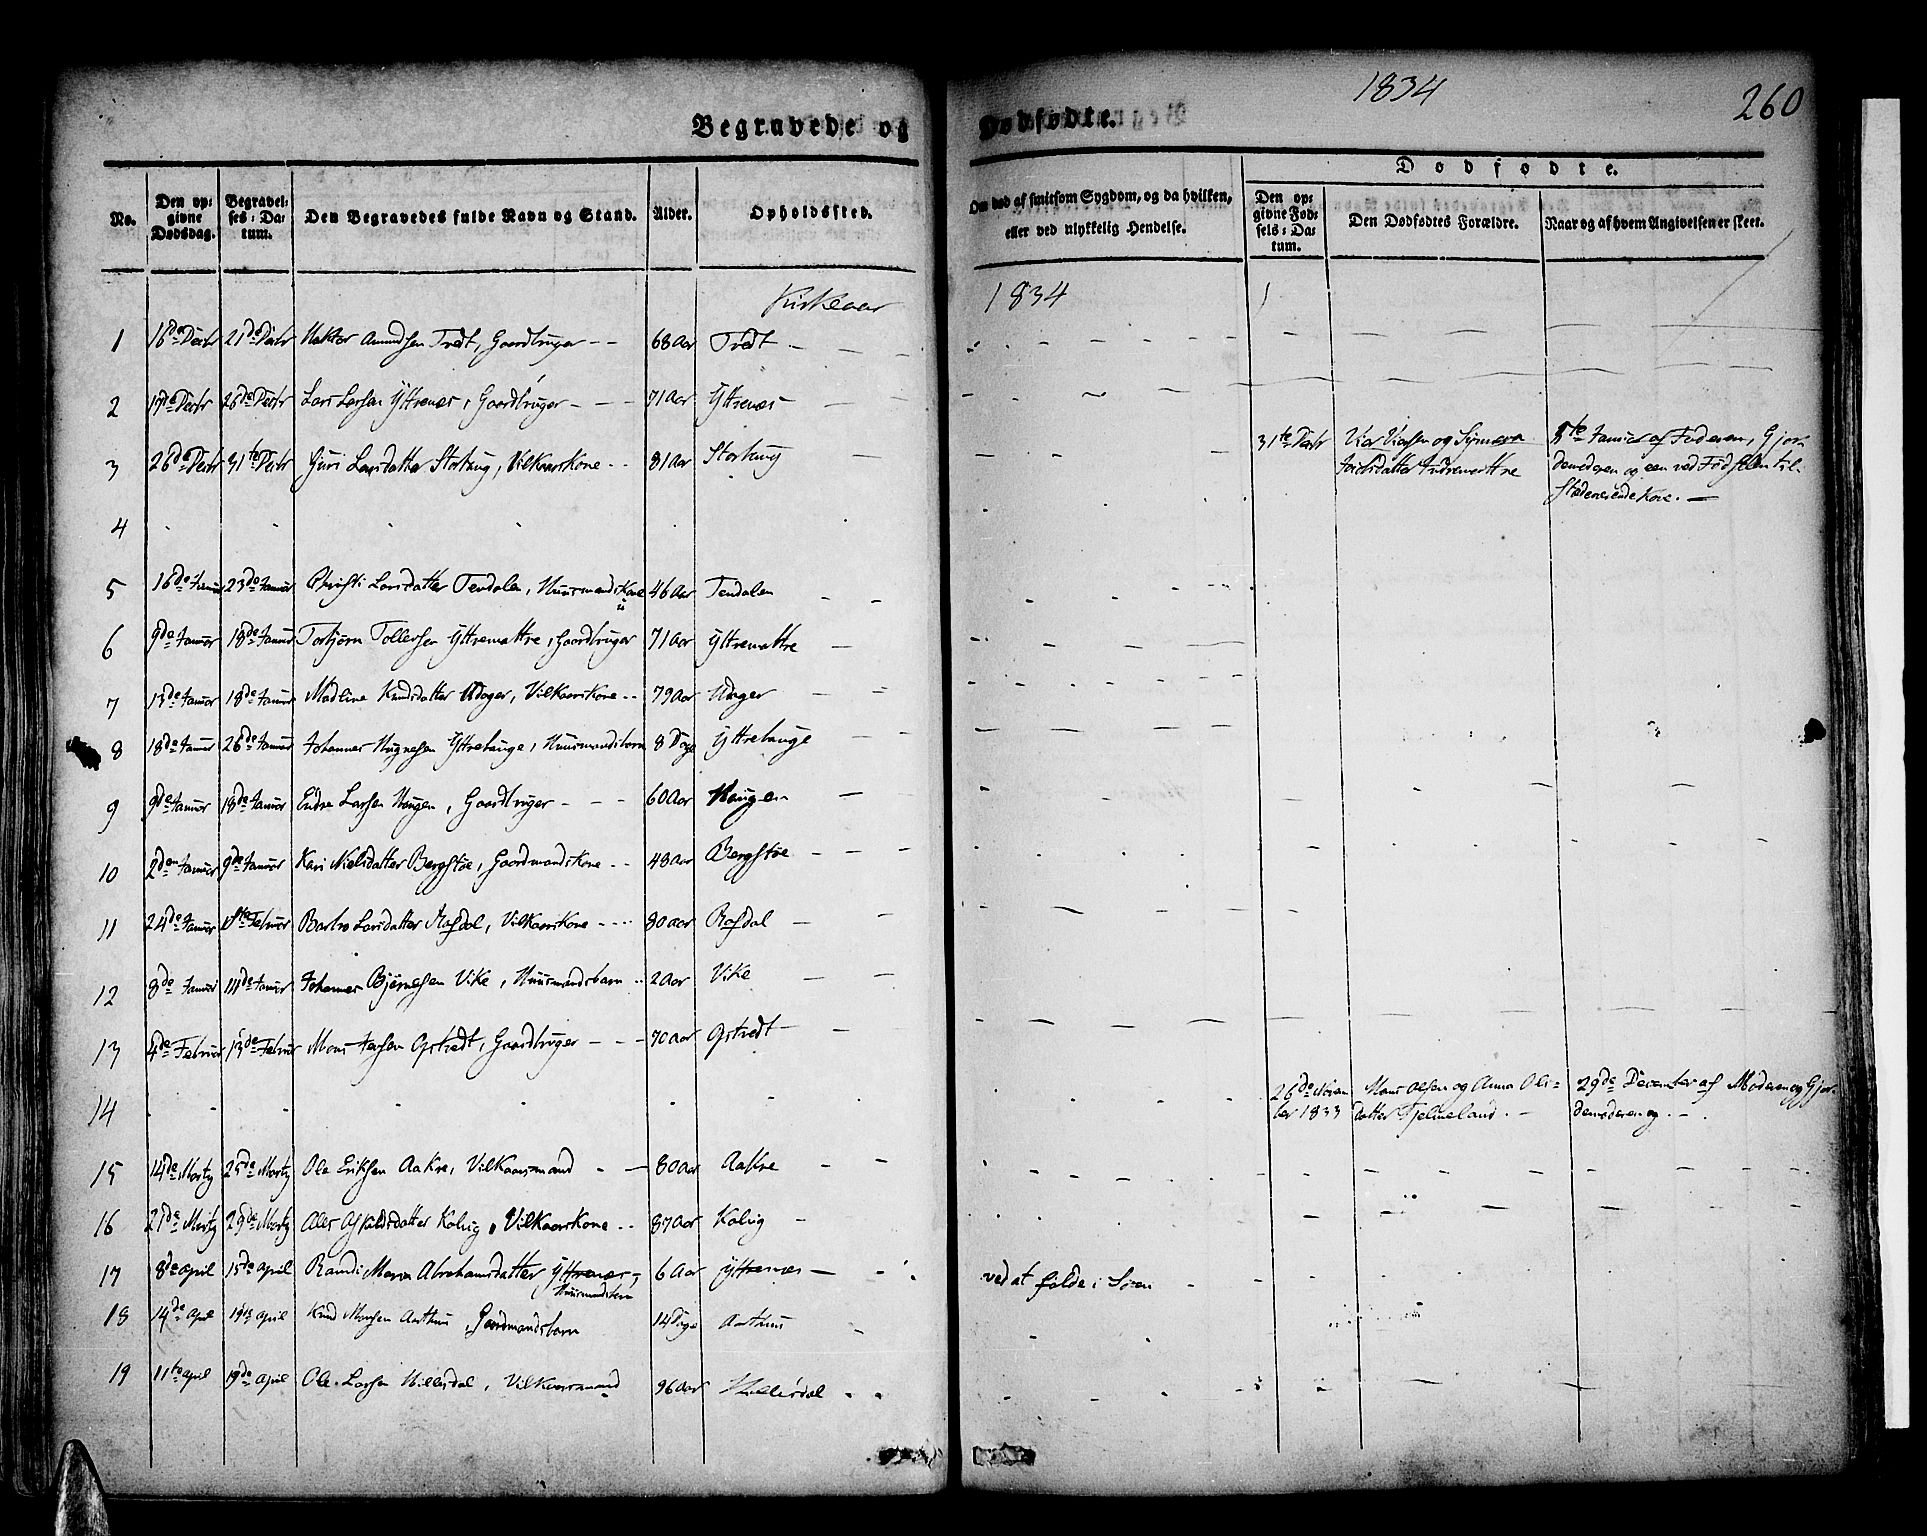 1834
260
Begravede og Dødfødte.
Dødfødte.
No.
Den op-
givne
Dødsdag.
Begravel-
ses-Da-
tum.
Den Begravedes fulde Navn og Stand.
Alder.
Opholdssted.
Om død af smitsom Sygdom, og da hvilken,
eller ved ulykkelig Hendelse.
Den op-
givne Fød-
sels-Da-
tum.
Den Dødfødtes Forældre.
Naar og af hvem Angivelsen er skeet.
Kirkeaar 1834
1 16de Decbr 21de Decbr Amundsen Tvedt, Gaardbruger 68 Aar Tvedt
2 17de Decbr 26de Decbr Lars Larsen Yttrenæs, Gaardbruger 71 Aar Yttrenæs
3 26de Decbr 31te Decbr Guri Larsdatter, Vilkaarskone 81 Aar
31te Decbr
Januar af Faderen, Gjor-
demoderen og een ved Fødselen til-
stædeværende Kone.
4
5 16de Januar 23de Januar Christi Larsdatter Tendalen, Huusmandskone 46 Aar Tendalen
6 9de Januar 18de Januar Torbjørn Tollefsen Yttremattre, Gaardbruger 71 Aar Yttremattre
7 13de Januar 18de Januar Madline Knudsdatter, Vilkaarskone 79 Aar
8 18de Januar 26de Januar Johannes Yttrehauge, Huusmandsbarn 8 Dage Yttrehauge
9 9de Januar 18de Januar Endre Larsen Haugen, Gaardbruger 60 Aar Haugen
10 2den Januar 9de Januar Kari Nielsdatter Bergstøe, Gaardmandskone 48 Aar Bergstøe
11 24de Januar 1ste Februar Barbro Larsdatter Rafdal, Vilkaarskone 80 Aar Rafdal
12 8de Januar 11de Januar Johannes Bjørnesen Vike, Huusmandsbarn 2 Aar Vike
13 4de Februar 13de Februar Mons Opstvedt, Gaardbruger 70 Aar Opstvedt
14
26de Novem-
ber 1833
Mons Olsen og Anna Ols-
datter Tjelmeland.
29de December af Moderen og Gjor-
demoderen og
15 14de Martz 25de Martz Ole Eriksen Aakre, Vilkaarsmand 80 Aar Aakre
16 21de Martz 29de Martz Ales Askildsdatter Kalvig, Vilkaarskone 87 Aar Kalvig
17 8de April 15de April Randi Maria Abrahamsdatter Yttrenæs, 6 Aar Yttrenæs ved at falde i Søen
Huusmandsbarn
18 14de April 19de April Knud Monsen Aarthun, Gaardmandsbarn 14 Dage Aarthun
19 11te April 19de April Ole Larsen Hillesdal, Vilkaarsmand 96 Aar Hillesdal